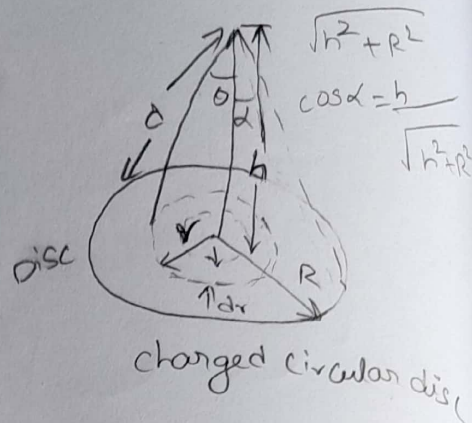 √h²+R²
cosα = h
√h²+R²
θ
α
d
h
r
R
Disc
dr
charged circular disc